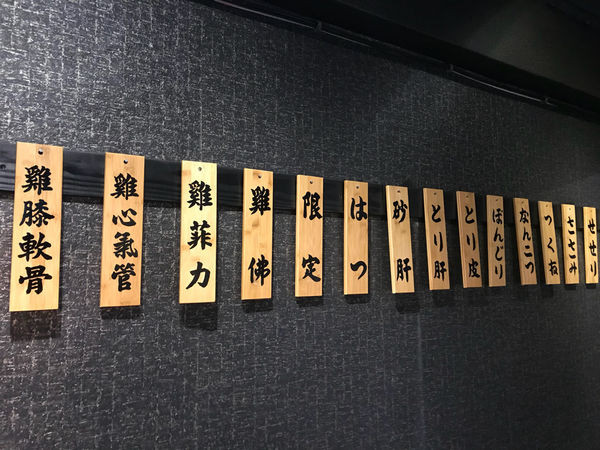 雞膝軟骨
雞心氣管
雞菲力
雞佛
限定
はつ
砂肝
とり肝
とり皮
ぼんじり
なんこつ
つくね
ささみ
せせり